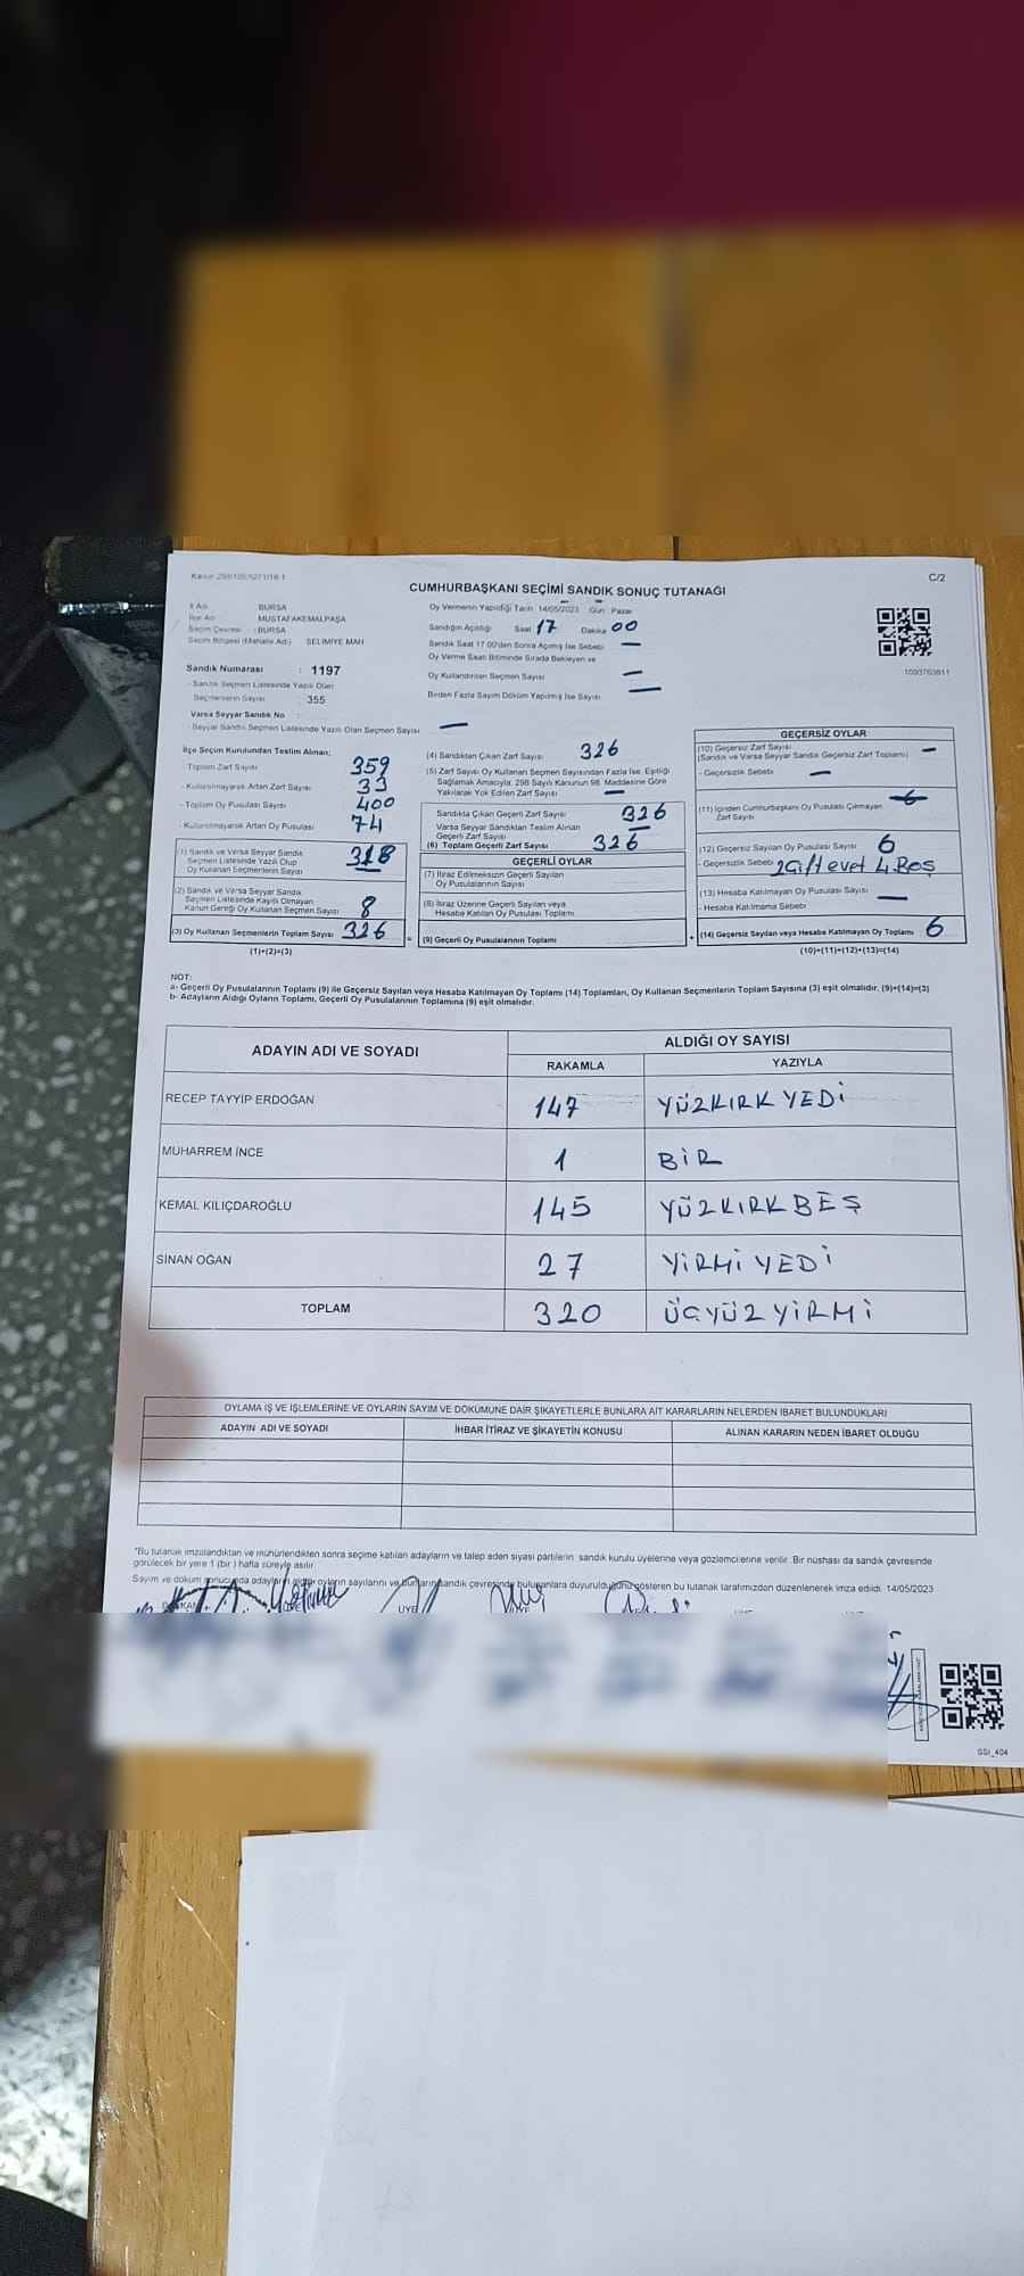 C/2
CUMHURBAŞKANI SEÇİMİ SANDIK SONUÇ TUTANAĞI
İl Adı : BURSA
İlçe Adı : MUSTAFAKEMALPAŞA
Seçim Çevresi : BURSA
Seçim Bölgesi (Mahalle Adı) : SELİMİYE MAH
Sandık Numarası : 1197
- Sandık Seçmen Listesinde Yazılı Olan
Seçmenlerin Sayısı : 355
Varsa Seyyar Sandık No :
- Seyyar Sandık Seçmen Listesinde Yazılı Olan Seçmen Sayısı —
Oy Vermenin Yapıldığı Tarih 14/05/2023 Gün: Pazar
Sandığın Açıldığı Saat 17 Dakika 00
Sandık Saat 17.00'den Sonra Açılmış İse Sebebi —
Oy Verme Saati Bitiminde Sırada Bekleyen ve
Oy Kullandırılan Seçmen Sayısı —
Birden Fazla Sayım Döküm Yapılmış İse Sayısı —
İlçe Seçim Kurulundan Teslim Alınan;
- Toplam Zarf Sayısı 359
- Kullanılmayarak Artan Zarf Sayısı 33
- Toplam Oy Pusulası Sayısı 400
- Kullanılmayarak Artan Oy Pusulası 74
(1) Sandık ve Varsa Seyyar Sandık
Seçmen Listesinde Yazılı Olup
Oy Kullanan Seçmenlerin Sayısı 318
(2) Sandık ve Varsa Seyyar Sandık
Seçmen Listesinde Kayıtlı Olmayan
Kanun Gereği Oy Kullanan Seçmen Sayısı 8
(3) Oy Kullanan Seçmenlerin Toplam Sayısı 326
(1)+(2)=(3)
(4) Sandıktan Çıkan Zarf Sayısı 326
(5) Zarf Sayısı Oy Kullanan Seçmen Sayısından Fazla İse, Eşitliği
Sağlamak Amacıyla, 298 Sayılı Kanunun 98. Maddesine Göre
Yakılarak Yok Edilen Zarf Sayısı —
Sandıkta Çıkan Geçerli Zarf Sayısı 326
Varsa Seyyar Sandıktan Teslim Alınan
Geçerli Zarf Sayısı —
(6) Toplam Geçerli Zarf Sayısı 326
GEÇERLİ OYLAR
(7) İtiraz Edilmeksizin Geçerli Sayılan
Oy Pusulalarının Sayısı
(8) İtiraz Üzerine Geçerli Sayılan veya
Hesaba Katılan Oy Pusulası Toplamı
(9) Geçerli Oy Pusulalarının Toplamı
GEÇERSİZ OYLAR
(10) Geçersiz Zarf Sayısı —
(Sandık ve Varsa Seyyar Sandık Geçersiz Zarf Toplamı)
- Geçersizlik Sebebi —
(11) İçinden Cumhurbaşkanı Oy Pusulası Çıkmayan
Zarf Sayısı
(12) Geçersiz Sayılan Oy Pusulası Sayısı 6
- Geçersizlik Sebebi 2 Çift evet 4 Boş
(13) Hesaba Katılmayan Oy Pusulası Sayısı —
- Hesaba Katılmama Sebebi
(14) Geçersiz Sayılan veya Hesaba Katılmayan Oy Toplamı 6
(10)+(11)+(12)+(13)=(14)
NOT:
a- Geçerli Oy Pusulalarının Toplamı (9) ile Geçersiz Sayılan veya Hesaba Katılmayan Oy Toplamı (14) Toplamları, Oy Kullanan Seçmenlerin Toplam Sayısına (3) eşit olmalıdır. (9)+(14)=(3)
b- Adayların Aldığı Oyların Toplamı, Geçerli Oy Pusulalarının Toplamına (9) eşit olmalıdır.
ADAYIN ADI VE SOYADI ALDIĞI OY SAYISI
RAKAMLA YAZIYLA
RECEP TAYYİP ERDOĞAN 147 YÜZKIRK YEDİ
MUHARREM İNCE 1 BİR
KEMAL KILIÇDAROĞLU 145 YÜZKIRKBEŞ
SİNAN OĞAN 27 YİRMİ YEDİ
TOPLAM 320 ÜÇYÜZ YİRMİ
OYLAMA İŞ VE İŞLEMLERİNE VE OYLARIN SAYIM VE DÖKÜMÜNE DAİR ŞİKAYETLERLE BUNLARA AİT KARARLARIN NELERDEN İBARET BULUNDUKLARI
ADAYIN ADI VE SOYADI İHBAR İTİRAZ VE ŞİKAYETİN KONUSU ALINAN KARARIN NEDEN İBARET OLDUĞU
*Bu tutanak imzalandıktan ve mühürlendikten sonra seçime katılan adayların ve talep eden siyasi partilerin, sandık kurulu üyelerine veya gözlemcilerine verilir. Bir nüshası da sandık çevresinde
görülecek bir yere 1 (bir) hafta süreyle asılır.
Sayım ve döküm sonucunda adayların aldığı oyların sayılarını ve bunların sandık çevresinde bulunanlara duyurulduğunu gösteren bu tutanak tarafımızdan düzenlenerek imza edildi. 14/05/2023
ÜYE
GSI_404